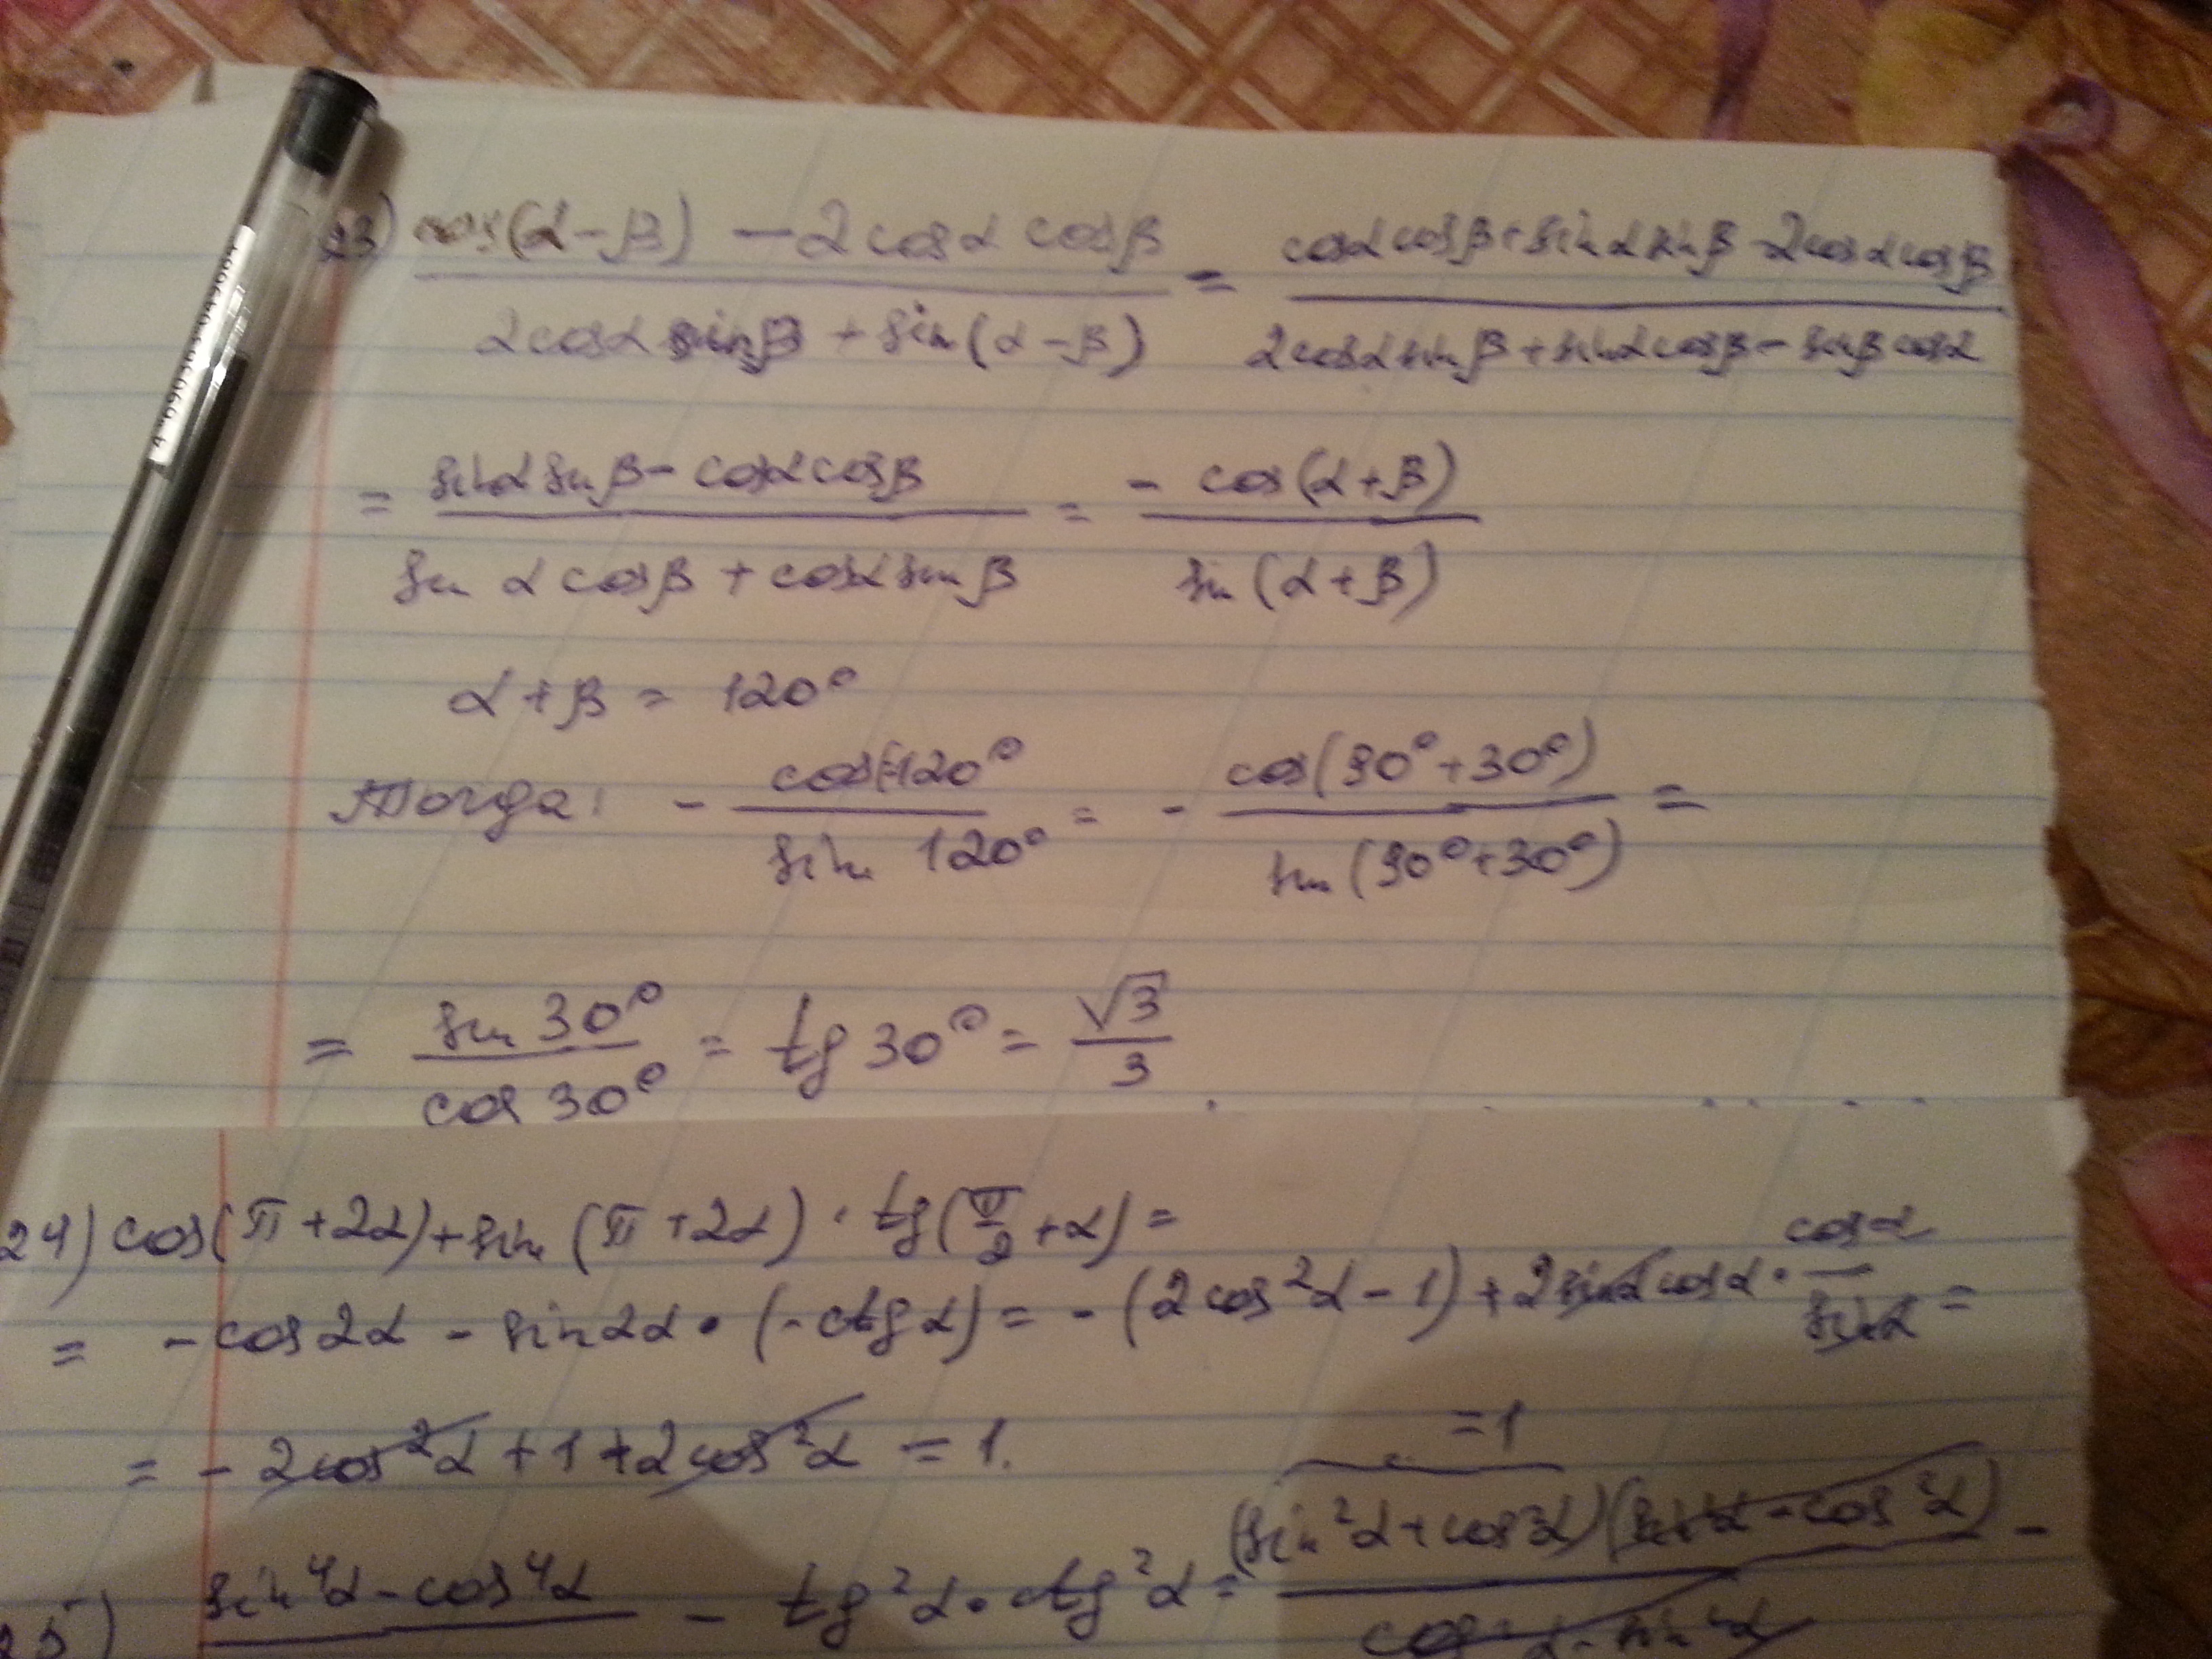 23) cos(α-β) - 2cosα cosβ / 2cosα sinβ + sin(α-β) = cosα cosβ + sinα sinβ - 2cosα cosβ / 2cosα sinβ + sinα cosβ - sinβ cosα
= sinα sinβ - cosα cosβ / sin α cosβ + cosα sinβ = - cos(α+β) / sin(α+β)
α+β = 120°
Тогда: - cos 120° / sin 120° = - cos(90°+30°) / sin(90°+30°) =
= sin 30° / cos 30° = tg 30° = √3 / 3
24) cos(π+2α)+sin(π+2α)·tg(π/2+α)=
= -cos2α - sin2α·(-ctgα) = -(2cos²α-1)+2sinα cosα·cosα/sinα =
= -2cos²α+1+2cos²α = 1.
=1
25) sin⁴α-cos⁴α - tg²α·ctg²α = (sin²α+cos²α)(sin²α-cos²α) / cos²α-sin²α -